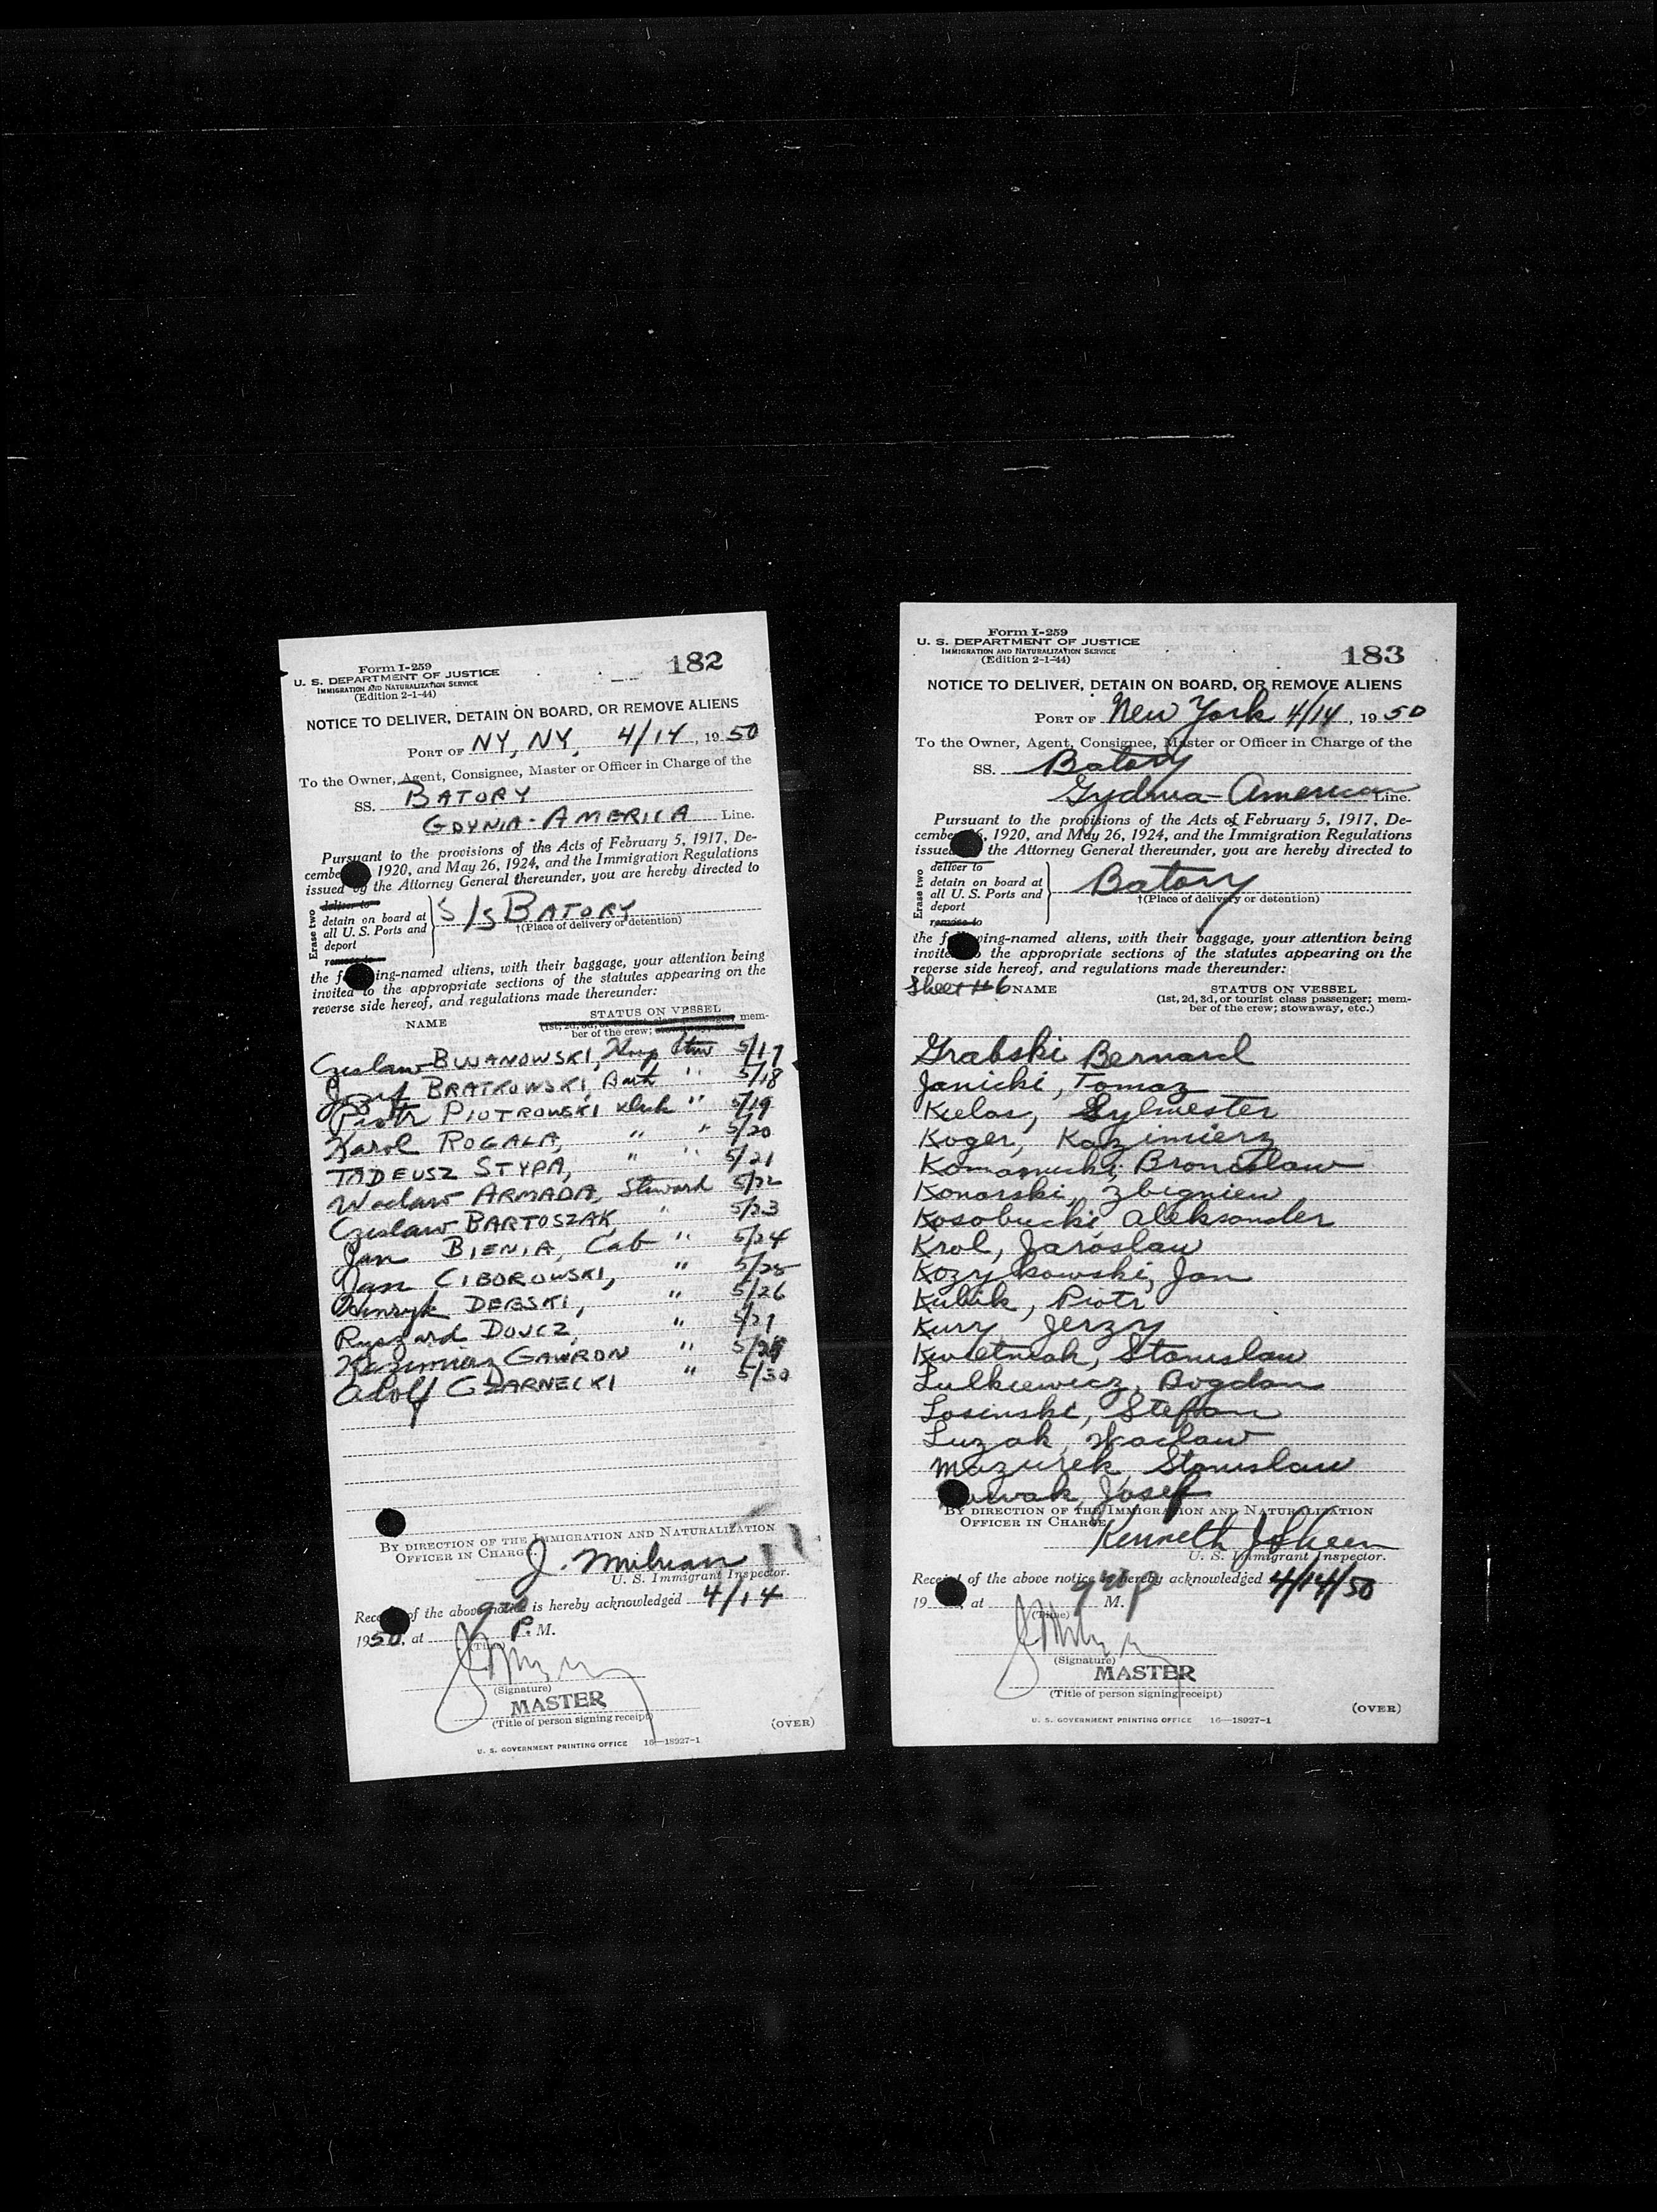 Form I-259
U. S. DEPARTMENT OF JUSTICE
IMMIGRATION AND NATURALIZATION SERVICE
(Edition 2-1-44)
182
NOTICE TO DELIVER, DETAIN ON BOARD, OR REMOVE ALIENS
PORT OF NY, NY, 4/14, 1950
To the Owner, Agent, Consignee, Master or Officer in Charge of the
SS. BATORY
GDYNIA-AMERICA Line.
Pursuant to the provisions of the Acts of February 5, 1917, De-
cembe 1920, and May 26, 1924, and the Immigration Regulations
issued by the Attorney General thereunder, you are hereby directed to
Erase two
deliver to
detain on board at
all U. S. Ports and
deport
remove to
S/S BATORY
†(Place of delivery or detention)
the f ing-named aliens, with their baggage, your attention being
invited to the appropriate sections of the statutes appearing on the
reverse side hereof, and regulations made thereunder:
NAME
STATUS ON VESSEL
(1st, 2d, 3d, or tourist class passenger; mem-
ber of the crew; stowaway,
Czeslaw BUJANOWSKI, 5/17
Jozef BRATKOWSKI, " 5/18
Piotr PIOTROWSKI " 5/19
Karol ROGALA, " " 5/20
TADEUSZ STYPA, " " 5/21
Waclaw ARMADA, Steward 5/22
Czeslaw BARTOSZAK " 5/23
Jan BIENIA, Cab " 5/24
Jan CIBOROWSKI, " 5/25
Henryk DEBSKI, " 5/26
Ryszard DOUCZ, "
Kazimierz GAWRON "
Adolf CZARNECKI " 5/30
BY DIRECTION OF THE IMMIGRATION AND NATURALIZATION
OFFICER IN CHARGE.
J.
U. S. Immigrant Inspector.
Rece of the above notice is hereby acknowledged 4/14
1950, at P. M.
(Time)
(Signature)
MASTER
(Title of person signing receipt)
(OVER)
U. S. GOVERNMENT PRINTING OFFICE 16—18927-1
Form I-259
U. S. DEPARTMENT OF JUSTICE
IMMIGRATION AND NATURALIZATION SERVICE
(Edition 2-1-44)
183
NOTICE TO DELIVER, DETAIN ON BOARD, OR REMOVE ALIENS
PORT OF New York 4/14, 1950
To the Owner, Agent, Consignee, Master or Officer in Charge of the
SS. Batory
Gydnia-American Line.
Pursuant to the provisions of the Acts of February 5, 1917, De-
cembe , 1920, and May 26, 1924, and the Immigration Regulations
issue the Attorney General thereunder, you are hereby directed to
Erase two
deliver to
detain on board at
all U. S. Ports and
deport
remove to
Batory
†(Place of delivery or detention)
the f wing-named aliens, with their baggage, your attention being
invite o the appropriate sections of the statutes appearing on the
reverse side hereof, and regulations made thereunder:
Sheet #6 NAME
STATUS ON VESSEL
(1st, 2d, 3d, or tourist class passenger; mem-
ber of the crew; stowaway, etc.)
Grabski Bernard
Janicki, Tomaz
Kielas, Sylwester
Koger, Kazimierz
Komarnicki, Bronislaw
Konarski, Zbigniew
Kosobucki Aleksander
Krol, Jaroslaw
Kozykowski, Jan
Kubik, Piotr
Kury Jerzy
Kwietniak, Stanislaw
Lulkiewicz, Bogdan
Losinski, Stefan
Luzak, Waclaw
Mazurek, Stanislaw
wak, Josef
BY DIRECTION OF THE IMMIGRATION AND NATURALIZATION
OFFICER IN CHARGE
Kenneth J Skeen
U. S. Immigrant Inspector.
Recei of the above notice is hereby acknowledged 4/14/50
19 , at M.
(Time)
(Signature)
MASTER
(Title of person signing receipt)
(OVER)
U. S. GOVERNMENT PRINTING OFFICE 16—18927-1